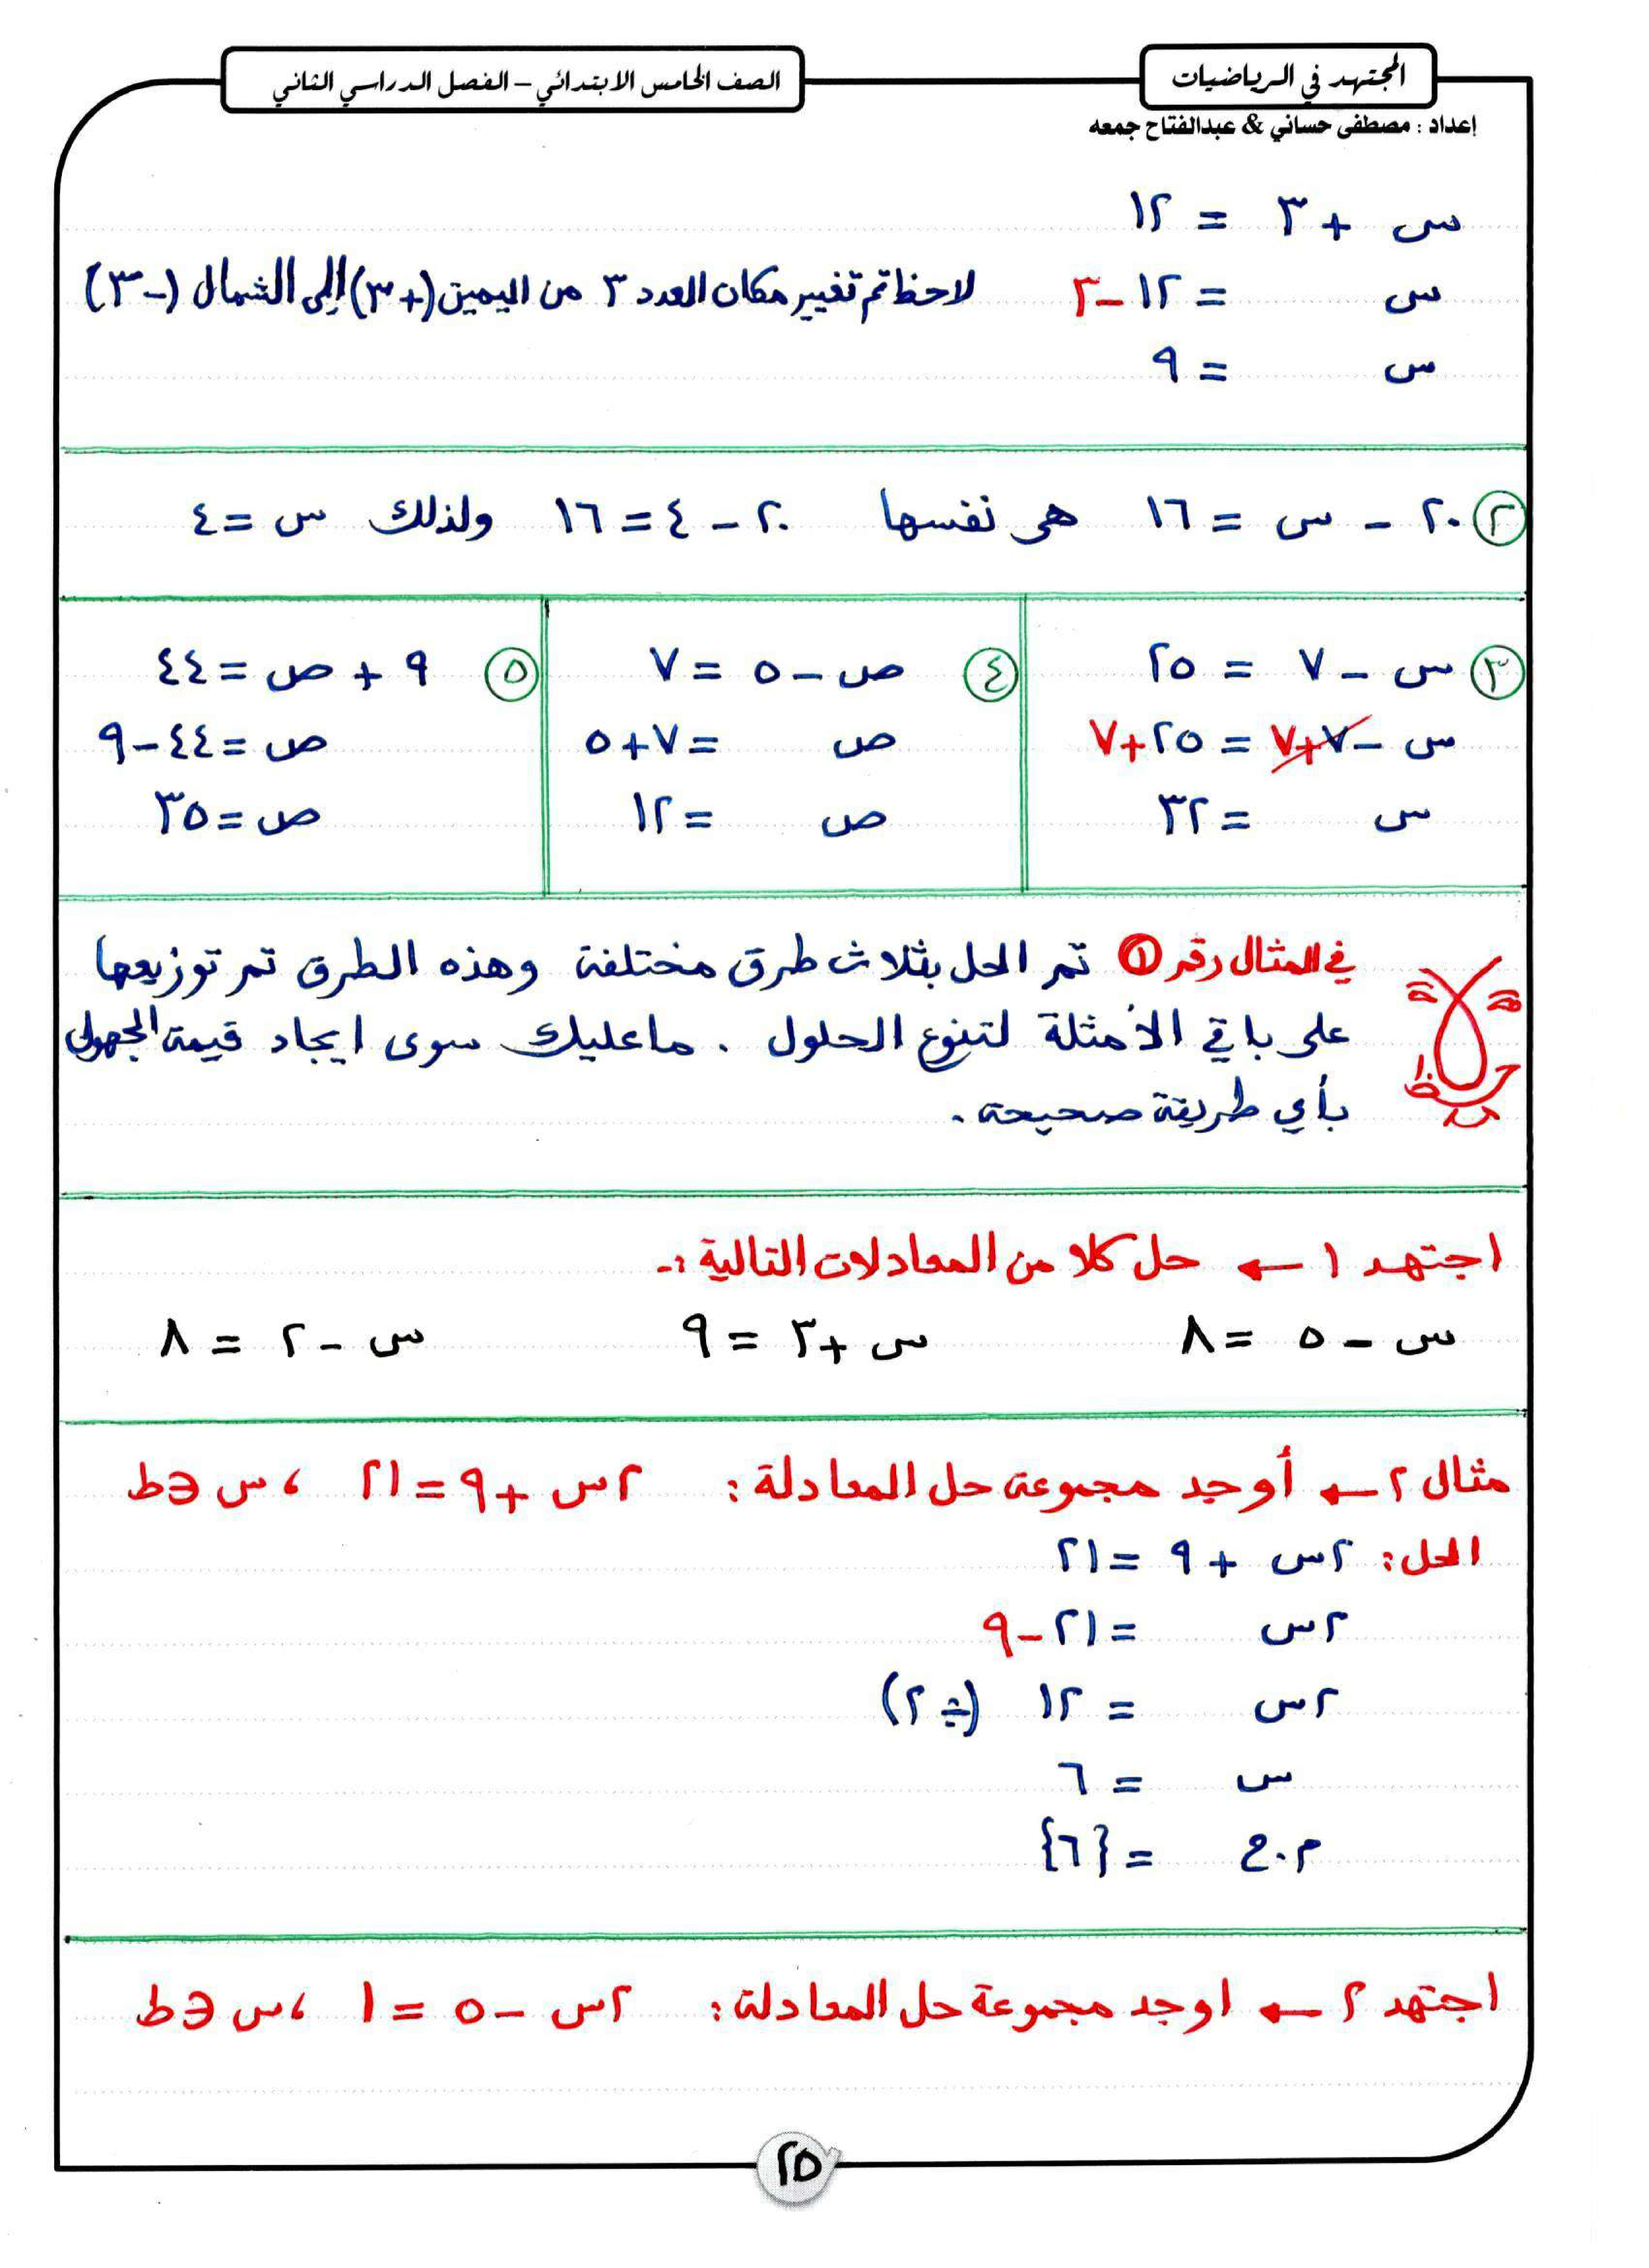 المجتهد في الرياضيات
الصف الخامس الابتدائي – الفصل الدراسي الثاني
إعداد : مصطفى حساني & عبدالفتاح جمعه
س + ٣ = ١٢
س = ١٢ – ٣ لاحظ تم تغيير مكان العدد ٣ من اليمين (+٣) إلى الشمال (–٣)
س = ٩
٢ ٢٠ – س = ١٦ هي نفسها ٢٠ – ٤ = ١٦ ولذلك س = ٤
٣ س – ٧ = ٢٥
س – ٧ + ٧ = ٢٥ + ٧
س = ٣٢
٤ ص – ٥ = ٧
ص = ٧ + ٥
ص = ١٢
٥ ٩ + ص = ٤٤
ص = ٤٤ – ٩
ص = ٣٥
لاحظ
في المثال رقم ١ تم الحل بثلاث طرق مختلفة وهذه الطرق تم توزيعها
على باقي الأمثلة لتنوع الحلول . ما عليك سوى ايجاد قيمة المجهول
بأي طريقة صحيحة .
اجتهد ١ ← حل كلا من المعادلات التالية :-
س – ٥ = ٨ س + ٣ = ٩ س – ٢ = ٨
مثال ٢ ← أوجد مجموعة حل المعادلة : ٢س + ٩ = ٢١ ، س ∈ ط
الحل : ٢س + ٩ = ٢١
٢س = ٢١ – ٩
٢س = ١٢ (÷ ٢)
س = ٦
م . ح = {٦}
اجتهد ٢ ← اوجد مجموعة حل المعادلة : ٢س – ٥ = ١ ، س ∈ ط
٢٥